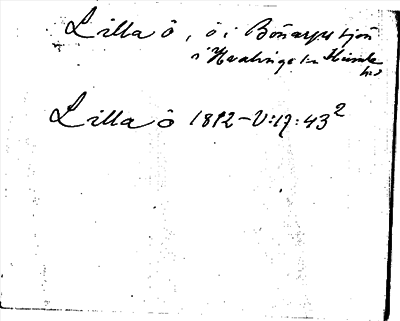 Lilla ö, ö i Bönarps sjön
i Hvalinge sn Himle
hd
Lilla ö 1812-V:17:43²